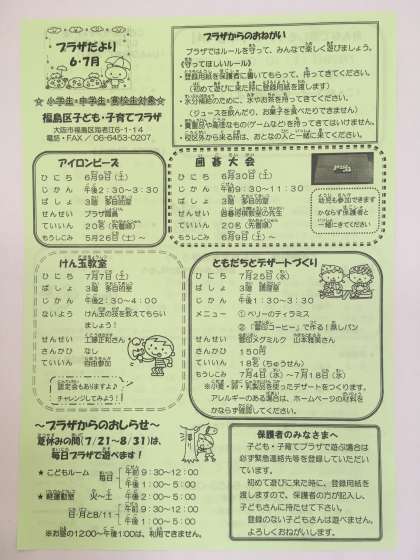 プラザだより
6・7月
☆ 小学生・中学生・高校生対象 ☆
福島区子ども・子育てプラザ
大阪市福島区海老江6-1-14
電話・FAX／06-6453-0207
プラザからのおねがい
プラザではルールを守って、みんなで楽しく遊びましょう。
《守ってほしいルール》
・登録用紙を保護者に書いてもらって、持ってきてください。
（初めて遊びに来た時に登録用紙を渡します）
・水分補給のために、水やお茶を持ってきてください。
（ジュースを飲んだり、お菓子を食べたりできません）
・貴重品や高価なもの（ゲームなど）を持ってきてはいけません。
・校区外から来る時は、おとなの人と一緒に来てください。
アイロンビーズ
ひにち 6月9日（土）
じかん 午後2：30～3：30
ばしょ 3階 多目的室
せんせい プラザ職員
ていいん 20名（先着順）
もうしこみ 5月26日（土）～
囲碁大会
ひにち 6月30日（土）
じかん 午前9：30～11：30
ばしょ 3階 多目的室
せんせい 囲碁将棋教室の先生
ていいん 20名（先着順）
もうしこみ 6月9日（土）～
幼児も参加できます
かならず保護者と
一緒にきてください
けん玉教室
ひにち 7月7日（土）
ばしょ 3階 多目的室
じかん 午後2：30～4：00
ないよう けん玉の技を教えてもらい
ましょう！
せんせい 工藤正和さん
さんかひ なし
ていいん 自由参加
認定会もありますよ♪
チャレンジしてみよう！
ともだちとデザートづくり
ひにち 7月25日（水）
ばしょ 3階 講座室
じかん 午後1：30～3：30
メニュー ① ベリーのティラミス
②「雪印コーヒー」で作る！蒸しパン
せんせい 雪印メグミルク 山本雅美さん
さんかひ 150円
ていいん 18名（ちゅうせん）
もうしこみ 7月4日（水）～7月18日（水）
※小麦・卵・乳製品を使ったデザートをつくります。
アレルギーのある場合は、ホームページの材料を
かならず確認してください。
～プラザからのおしらせ～
夏休みの間（7/21～8/31）は、
毎日プラザで遊べます！
★ こどもルーム 毎日 午前 9：30～12：00
午後 1：00～5：00
★ 軽運動室 火～土 午後 2：00～5：00
日・月と8/11 午前 9：30～12：00
午後 1：00～5：00
※お昼の12：00～1：00は、利用できません。
保護者のみなさまへ
子ども・子育てプラザで遊ぶ場合は
必ず緊急連絡先等を登録していただい
ています。
初めて遊びに来た時に、登録用紙を
渡しますので、保護者の方が記入し、
子どもさんに持たせて下さい。
登録のない子どもさんは遊べません。
よろしくおねがいします。